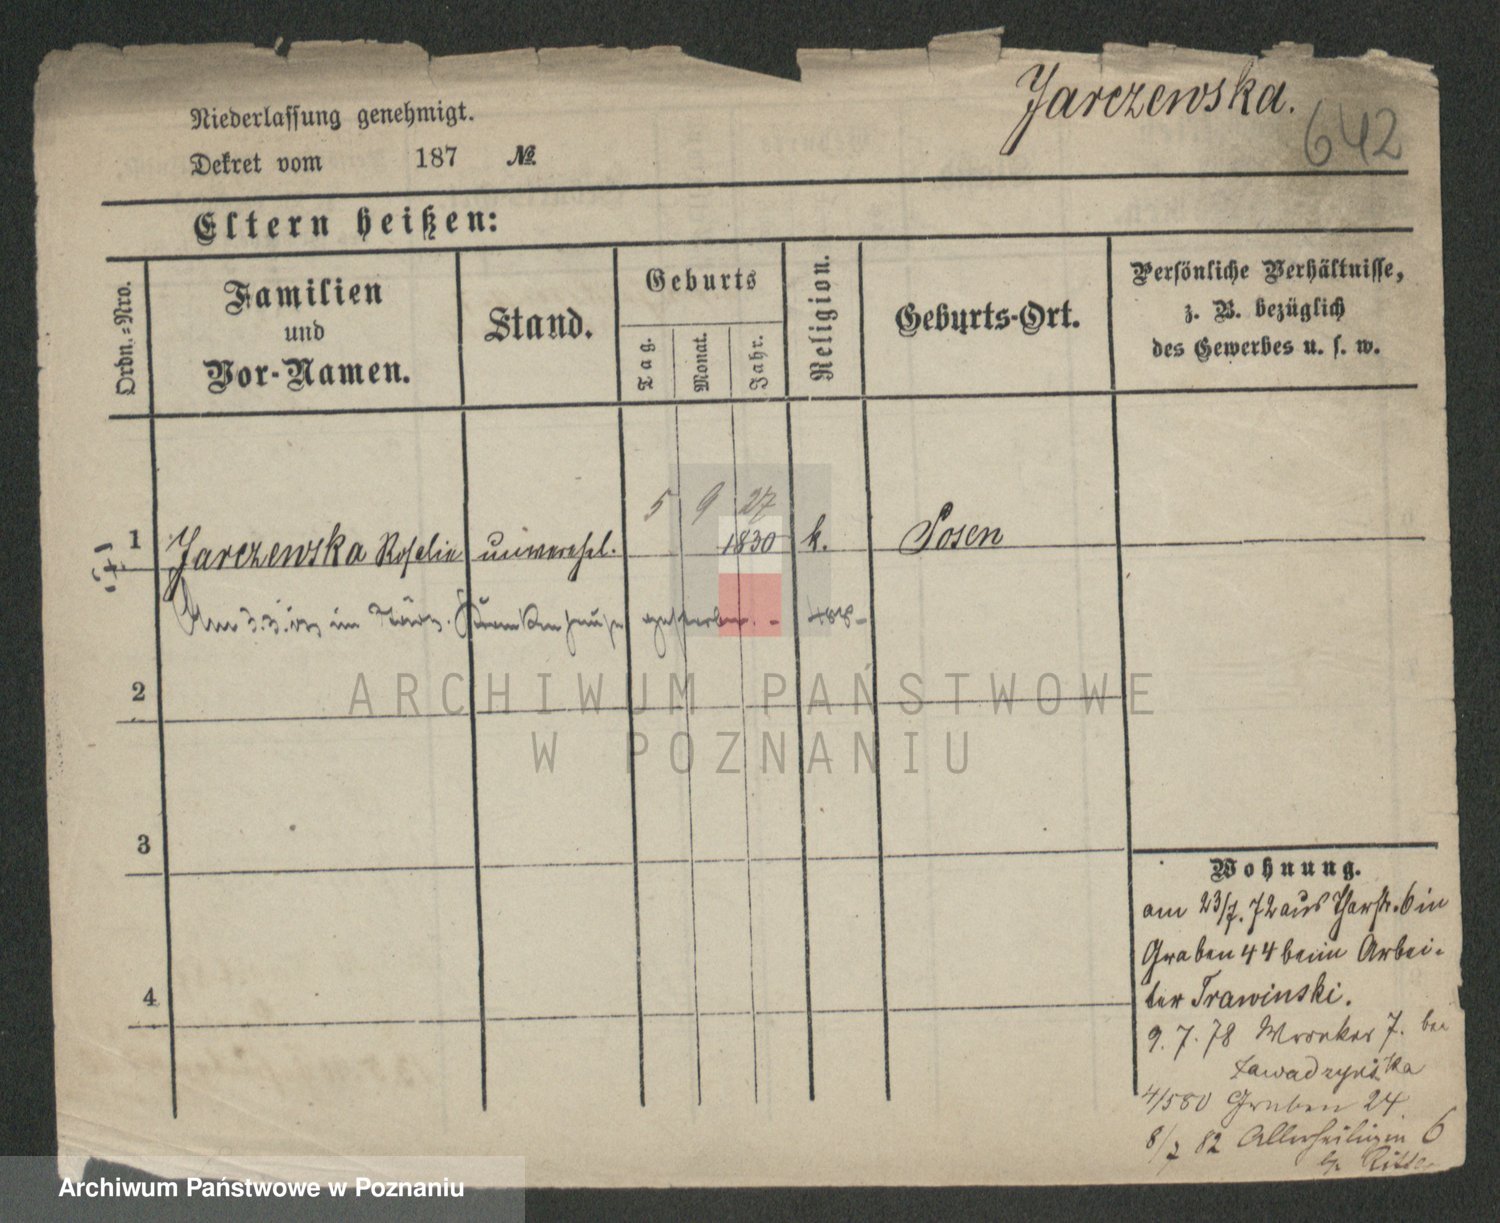 Jarczewska.
642
Niederlassung genehmigt.
Dekret vom 187 №.
Eltern heißen:
Ordn.=Nro.
Familien
und
Vor-Namen.
Stand.
Geburts
Tag.
Monat.
Jahr.
Religion.
Geburts-Ort.
Persönliche Verhältnisse,
z. B. bezüglich
des Gewerbes u. s. w.
5 9 27
1 Jarczewska Rosalie unverehel. 1830 k. Posen
Am 3.3. im Krankenhause gestorben.
2
ARCHIWUM PAŃSTWOWE
W POZNANIU
3
4
Wohnung.
am 23/7. 72 aus 6 in
Graben 44 beim Arbei-
ter Trawinski.
9. 7. 78 Wronker 7. bei
Zawadzynska
4/5 80 Graben 24
8/7 82 Allerheiligen 6
Archiwum Państwowe w Poznaniu